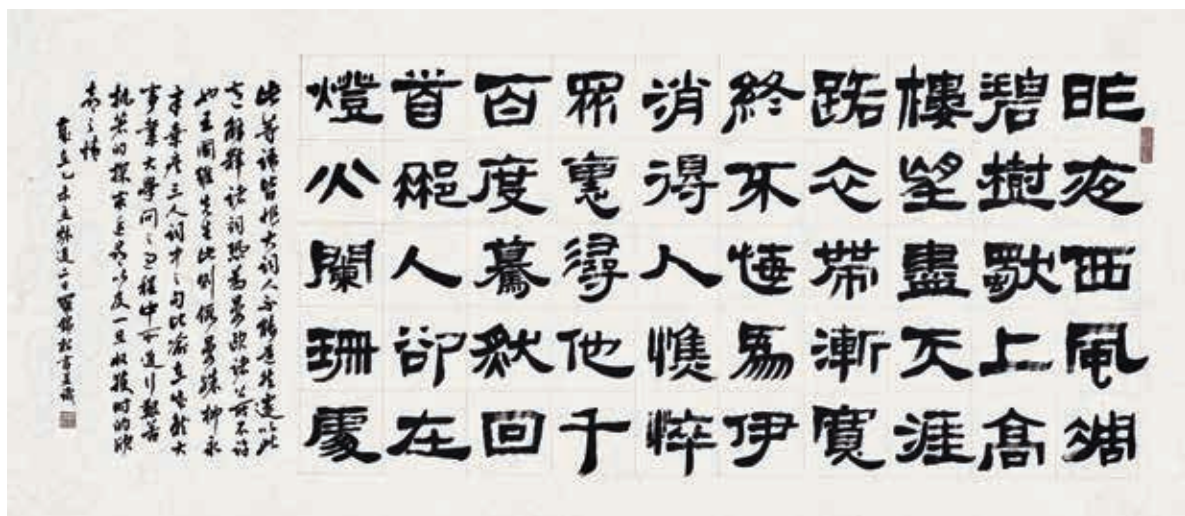 昨夜西風凋
碧樹獨上高
樓望盡天涯
路衣帶漸寬
終不悔為伊
消得人憔悴
眾裏尋他千
百度驀然回
首那人卻在
燈火闌珊處
此等語皆非大詞人不能道然遽以此
意解釋諸詞恐為晏歐諸公所不許
也王國維先生此別借晏殊柳永
辛棄疾三人詞中之句比喻在成就大
事業大學問之過程中所進行艱苦
執著的探索追尋以及一旦收獲時的欣
喜之情
歲在乙未